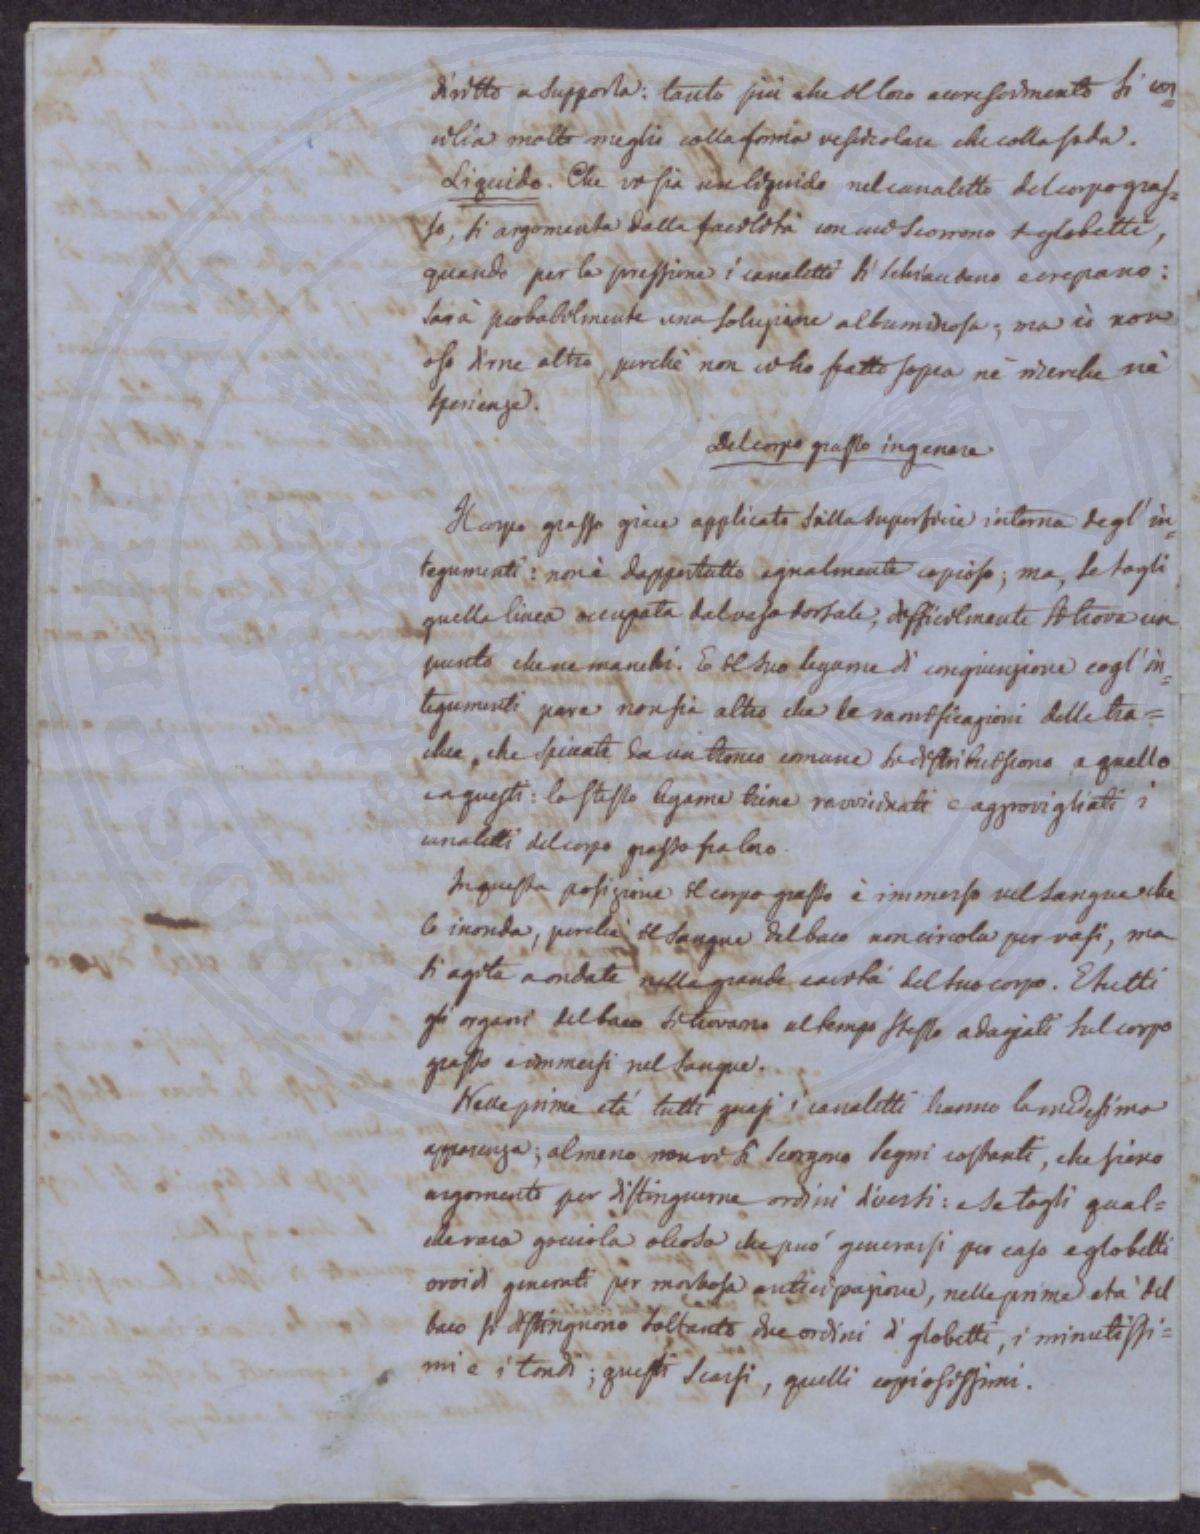 diritto a supporla: tanto più che il loro accrescimento si con=
cilia molto meglio colla forma vescicolare che colla soda.
Liquido. Che vi sia un liquido nel canaletto del corpo gras=
so, si argomenta dalla facilità con cui scorrono i globetti,
quando per la pressione i canaletti si schiacciano e crepano:
sarà probabilmente una soluzione albuminosa; ma io non
oso dirne altro, perchè non vi ho fatto sopra nè ricerche nè
sperienze.
Del corpo grasso in genere
Il corpo grasso giace applicato sulla superficie interna degl' in=
tegumenti: non è dappertutto egualmente copioso; ma, se togli
quella linea occupata dal vaso dorsale, difficilmente si trova un
punto che ne manchi. E il suo legame di congiunzione cogl' in=
tegumenti pare non sia altro che le ramificazioni delle tra=
chee, che spiccate da un tronco comune si distribuiscono a quello
e a questi: lo stesso legame tiene ravvicinati e aggrovigliati i
canaletti del corpo grasso fra loro.
In questa posizione il corpo grasso è immerso nel sangue che
lo inonda, perchè il sangue del baco non circola per vasi, ma
si agita a ondate nella grande cavità del suo corpo. E tutti
gli organi del baco si trovano al tempo stesso adagiati sul corpo
grasso e immersi nel sangue.
Nelle prime età tutti quasi i canaletti hanno la medesima
apparenza; almeno non vi si scorgono segni costanti, che sieno
argomento per distinguerne ordini diversi: e se togli qual=
che rara gocciola oleosa che può generarsi per caso e globetti
ovoidi generati per morbosa anticipazione, nelle prime età del
baco si distinguono soltanto due ordini di globetti, i minutissi=
mi e i tondi; questi scarsi, quelli copiosissimi.